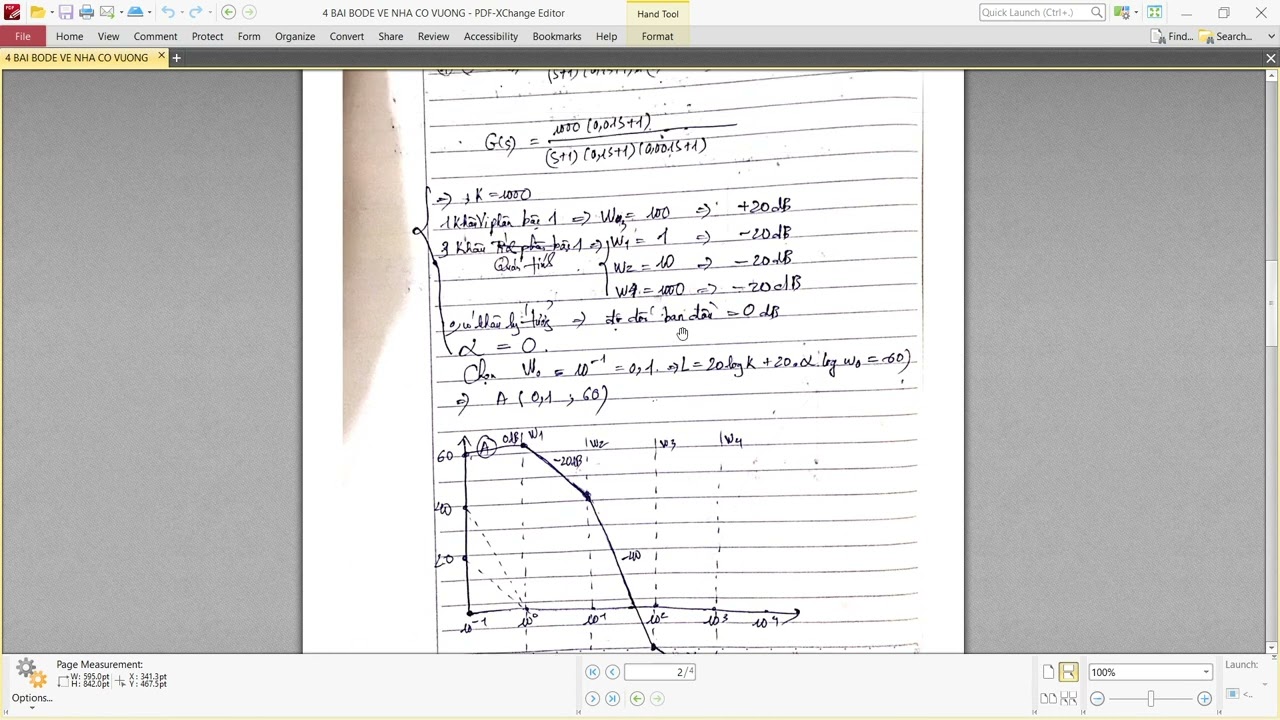 4 BAI BODE VE NHA CO VUONG - PDF-XChange Editor
Hand Tool
Quick Launch (Ctrl+.)
File Home View Comment Protect Form Organize Convert Share Review Accessibility Bookmarks Help Format
Find... Search...
4 BAI BODE VE NHA CO VUONG
1000 (0,01S+1)
G(s) =
(S+1) (0,1S+1) (0,001S+1)
=> , K = 1000
1 khâu vi phân bậc 1 => W3 = 100 => +20dB
3 khâu bậc 1 => W1 = 1 => -20dB
Quán tính W2 = 10 => -20dB
W4 = 1000 => -20dB
khâu lý tưởng => độ dốc ban đầu = 0 dB
α = 0.
Chọn W0 = 10^-1 = 0,1. => L = 20logK + 20.α.log w0 = 60)
=> A (0,1 ; 60)
60 A 0dB W1 W2 W3 W4
-20dB
40
20 -40
10^-1 10^0 10^1 10^2 10^3 10^4
Options...
Page Measurement:
W: 595.0pt
H: 842.0pt
X: 341.3pt
Y: 467.5pt
2/4
100%
Launch: